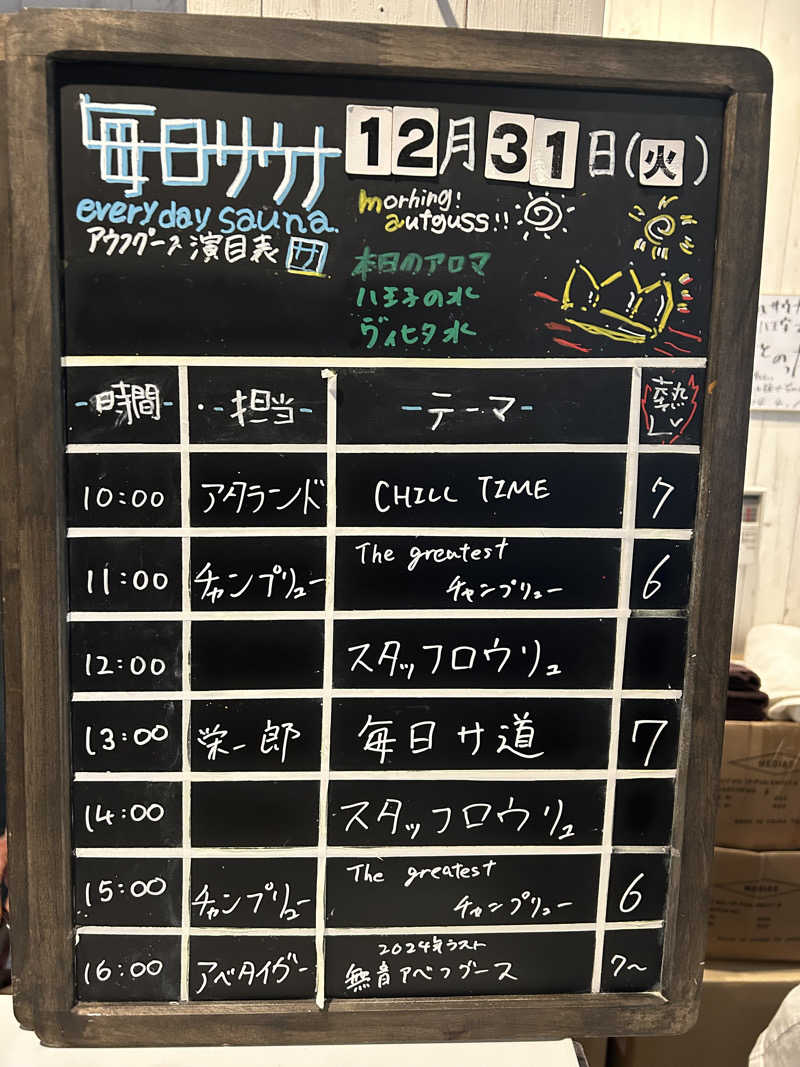 毎日サウナ
12月31日(火)
everyday sauna.
morning!
aufguss!!
アウフグース演目表 サウナ
本日のアロマ
八王子の水
ヴィヒタ水
時間 担当 テーマ 熱レベ
10:00 アタランド CHILL TIME 7
11:00 チャンプリュー The greatest チャンプリュー 6
12:00 スタッフロウリュ
13:00 栄一郎 毎日サ道 7
14:00 スタッフロウリュ
15:00 チャンプリュー The greatest チャンプリュー 6
16:00 アベタイガー 2024年ラスト 無音アベフグース 7〜